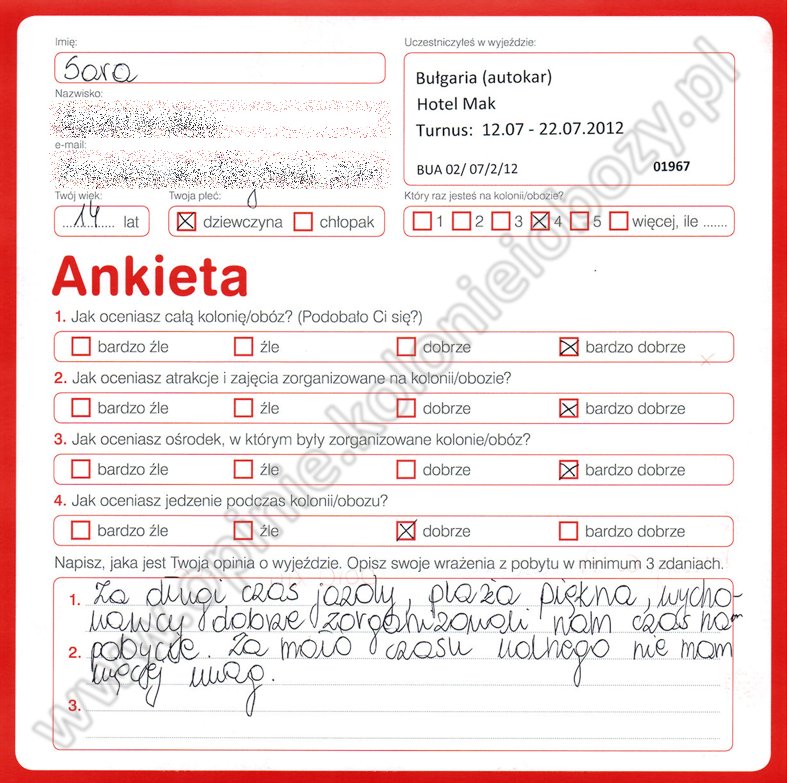 Imię:
Sara
Nazwisko:
e-mail:
Twój wiek:
14 lat
Twoja płeć:
dziewczyna chłopak
Uczestniczyłeś w wyjeździe:
Bułgaria (autokar)
Hotel Mak
Turnus: 12.07 - 22.07.2012
BUA 02/ 07/2/12 01967
Który raz jesteś na kolonii/obozie?
1 2 3 4 5 więcej, ile .......
Ankieta
1. Jak oceniasz całą kolonię/obóz? (Podobało Ci się?)
bardzo źle źle dobrze bardzo dobrze
2. Jak oceniasz atrakcje i zajęcia zorganizowane na kolonii/obozie?
bardzo źle źle dobrze bardzo dobrze
3. Jak oceniasz ośrodek, w którym były zorganizowane kolonie/obóz?
bardzo źle źle dobrze bardzo dobrze
4. Jak oceniasz jedzenie podczas kolonii/obozu?
bardzo źle źle dobrze bardzo dobrze
Napisz, jaka jest Twoja opinia o wyjeździe. Opisz swoje wrażenia z pobytu w minimum 3 zdaniach.
1. Za długi czas jazdy, plaża piękna, wycho-
wawcy dobrze zorganizowali nam czas na
2. pobycie. Za mało czasu wolnego nie mam
więcej uwag.
3.
www.opinie.kolonieiobozy.pl